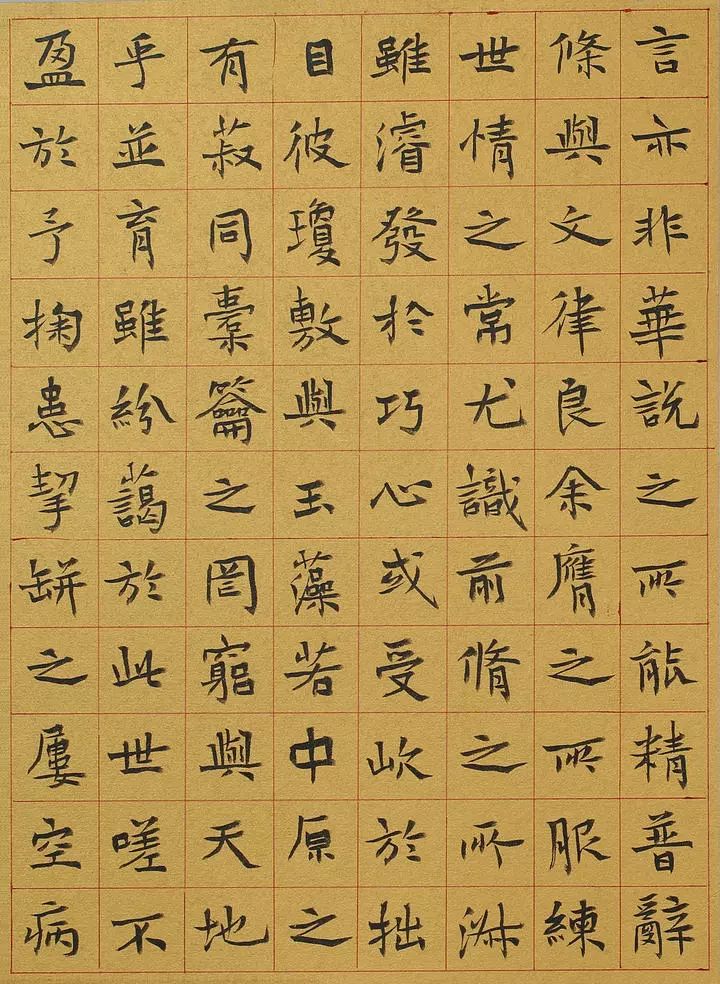 言亦非華說之所能精普辭
條與文律良余膺之所服練
世情之常尤識前脩之所淑
雖濬發於巧心或受㰞於拙
目彼瓊敷與玉藻若中原之
有菽同橐籥之罔窮與天地
乎並育雖紛藹於此世嗟不
盈於予掬患挈缾之屢空病